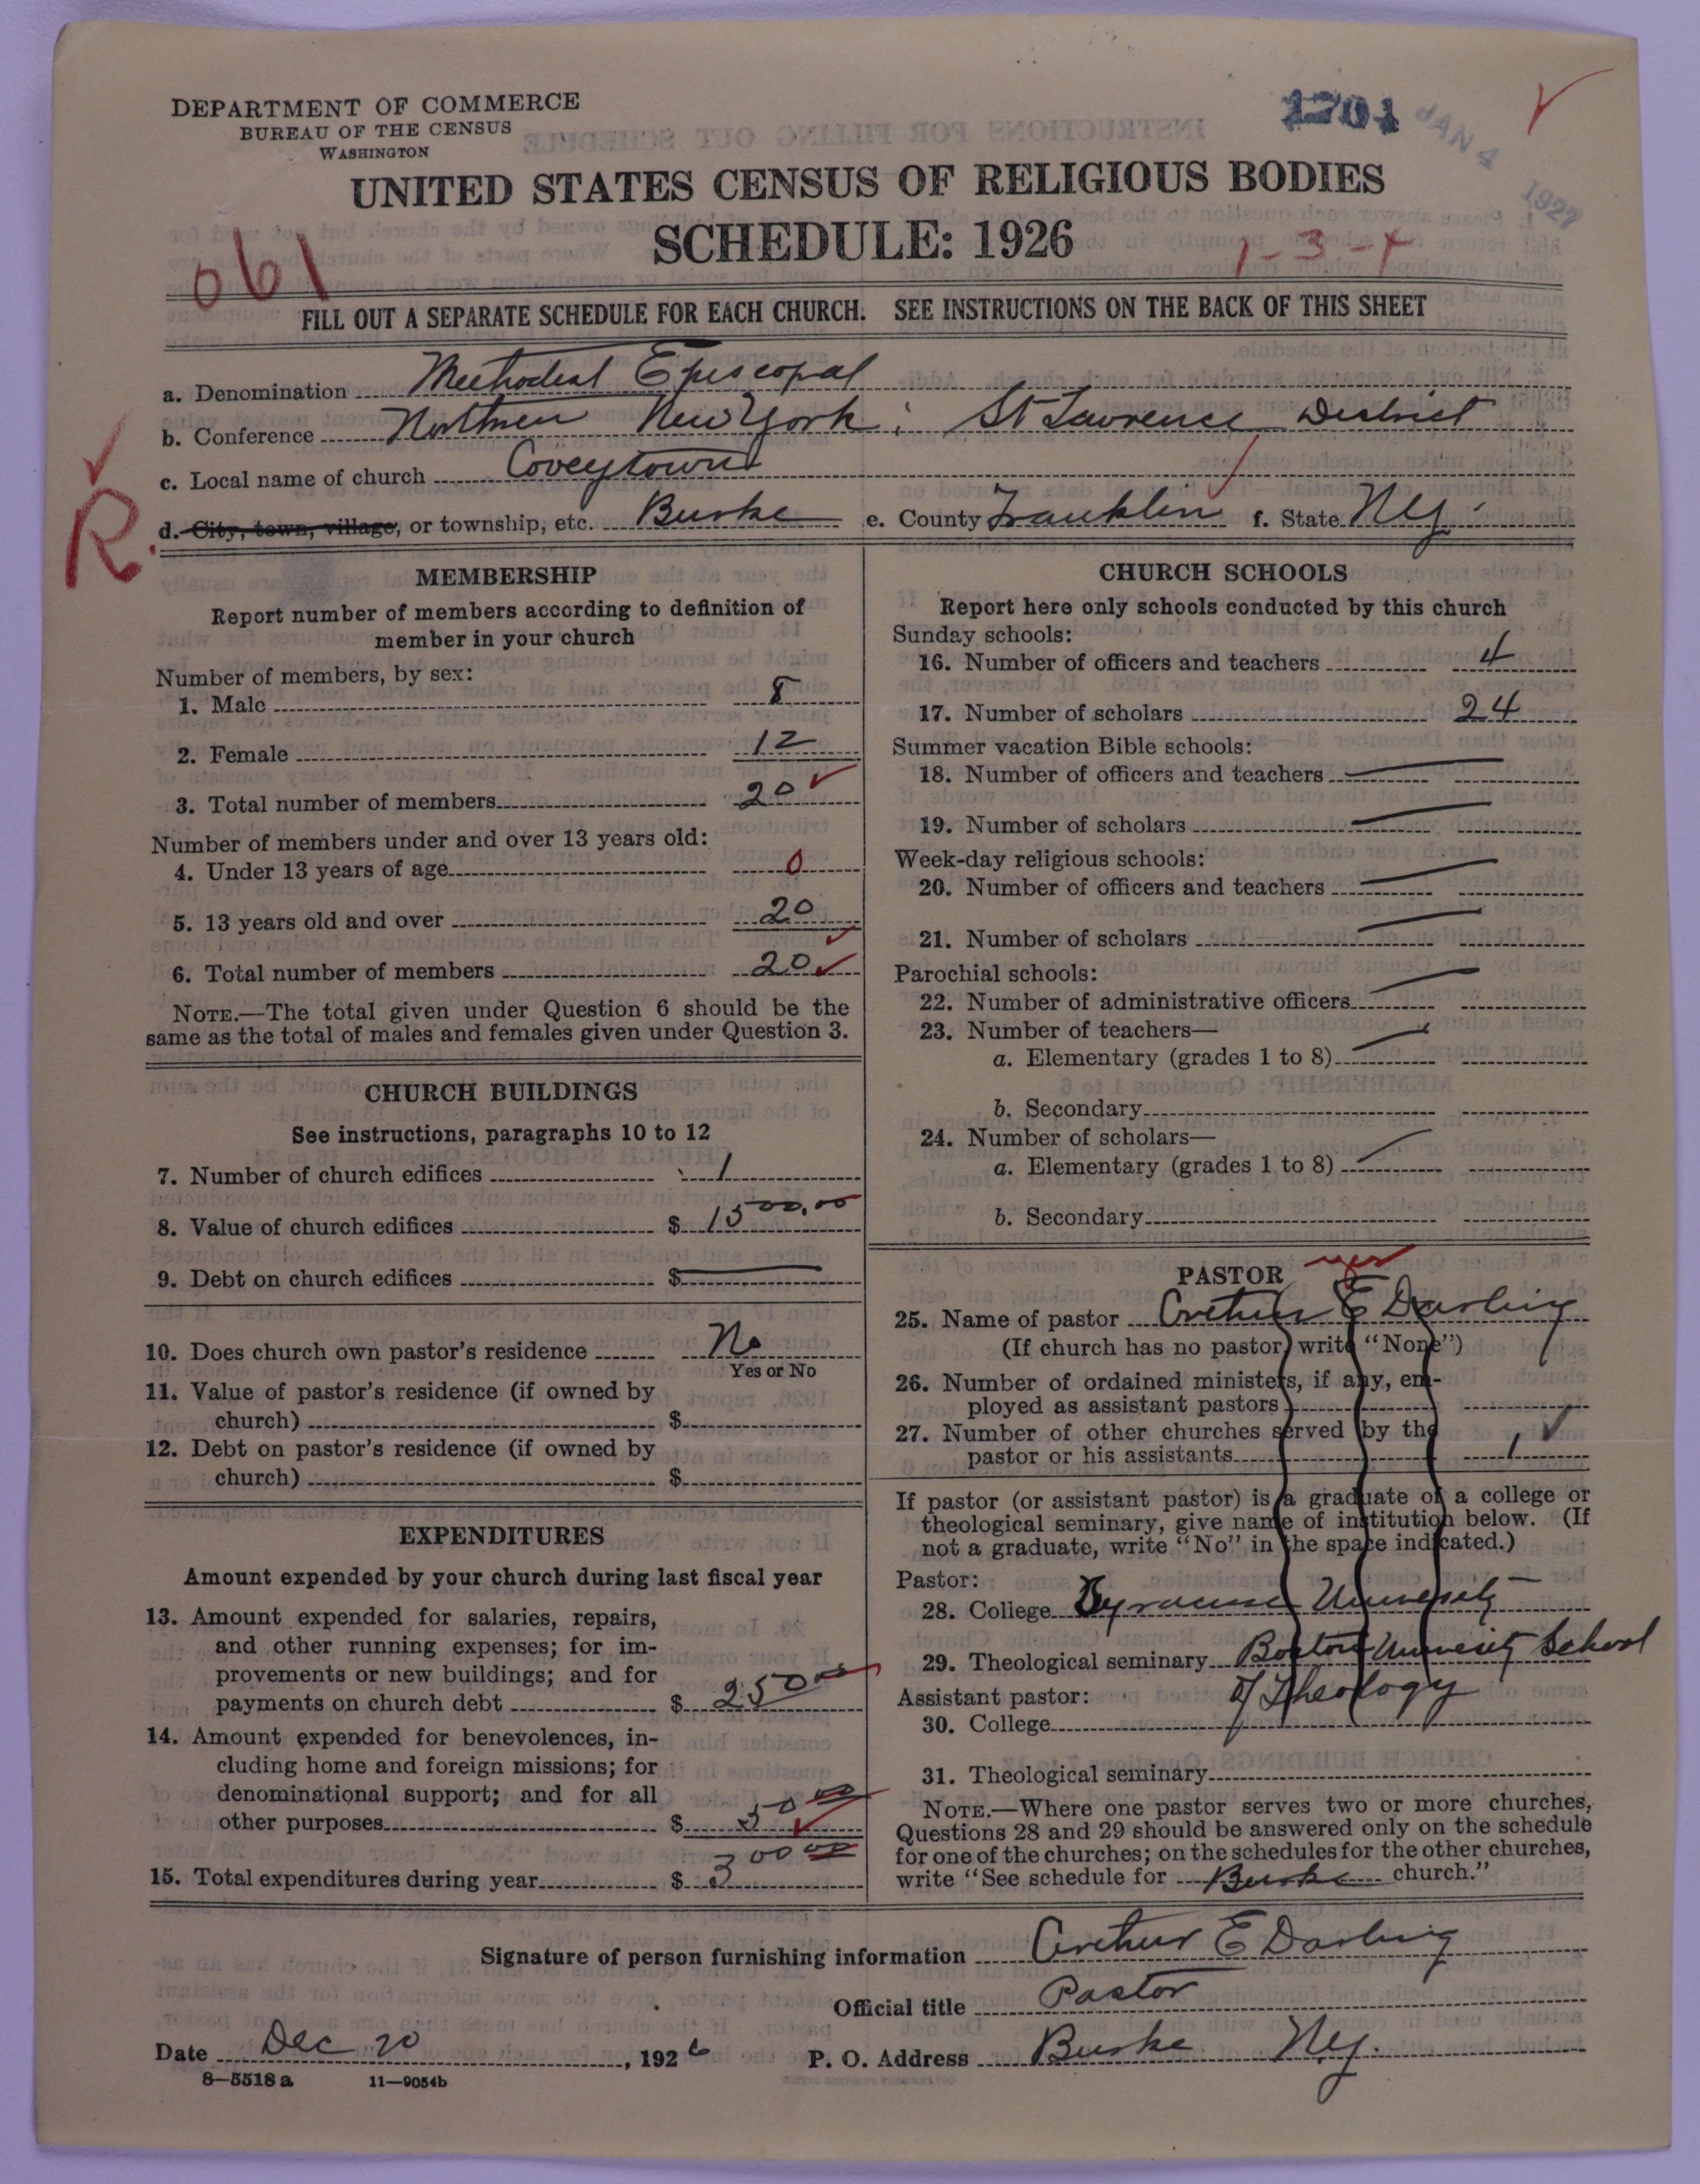 DEPARTMENT OF COMMERCE
BUREAU OF THE CENSUS
WASHINGTON
1701
JAN 4 1927
UNITED STATES CENSUS OF RELIGIOUS BODIES
SCHEDULE: 1926
061
1-3-4
FILL OUT A SEPARATE SCHEDULE FOR EACH CHURCH. SEE INSTRUCTIONS ON THE BACK OF THIS SHEET
a. Denomination Methodist Episcopal
b. Conference Northern New York; St Lawrence District
c. Local name of church Coveytown
R.
d. City, town, village, or township, etc. Burke e. County Franklin f. State NY.
MEMBERSHIP
Report number of members according to definition of
member in your church
Number of members, by sex:
1. Male 8
2. Female 12
3. Total number of members 20
Number of members under and over 13 years old:
4. Under 13 years of age 0
5. 13 years old and over 20
6. Total number of members 20
NOTE.—The total given under Question 6 should be the
same as the total of males and females given under Question 3.
CHURCH BUILDINGS
See instructions, paragraphs 10 to 12
7. Number of church edifices 1
8. Value of church edifices $ 1500.00
9. Debt on church edifices $
10. Does church own pastor's residence No
Yes or No
11. Value of pastor's residence (if owned by
church) $
12. Debt on pastor's residence (if owned by
church) $
EXPENDITURES
Amount expended by your church during last fiscal year
13. Amount expended for salaries, repairs,
and other running expenses; for im-
provements or new buildings; and for
payments on church debt $ 250 00
14. Amount expended for benevolences, in-
cluding home and foreign missions; for
denominational support; and for all
other purposes $ 50 00
15. Total expenditures during year $ 300 00
CHURCH SCHOOLS
Report here only schools conducted by this church
Sunday schools:
16. Number of officers and teachers 4
17. Number of scholars 24
Summer vacation Bible schools:
18. Number of officers and teachers
19. Number of scholars
Week-day religious schools:
20. Number of officers and teachers
21. Number of scholars
Parochial schools:
22. Number of administrative officers
23. Number of teachers—
a. Elementary (grades 1 to 8)
b. Secondary
24. Number of scholars—
a. Elementary (grades 1 to 8)
b. Secondary
PASTOR yes
25. Name of pastor Arthur E Darling
(If church has no pastor write "None")
26. Number of ordained ministers, if any, em-
ployed as assistant pastors
27. Number of other churches served by the
pastor or his assistants 1
If pastor (or assistant pastor) is a graduate of a college or
theological seminary, give name of institution below. (If
not a graduate, write "No" in the space indicated.)
Pastor:
28. College Syracuse University
29. Theological seminary Boston University School
of Theology
Assistant pastor:
30. College
31. Theological seminary
NOTE.—Where one pastor serves two or more churches,
Questions 28 and 29 should be answered only on the schedule
for one of the churches; on the schedules for the other churches,
write "See schedule for Burke church."
Signature of person furnishing information Arthur E Darling
Official title Pastor
Date Dec 20, 1926 P. O. Address Burke NY.
8—5518 a 11—9054b